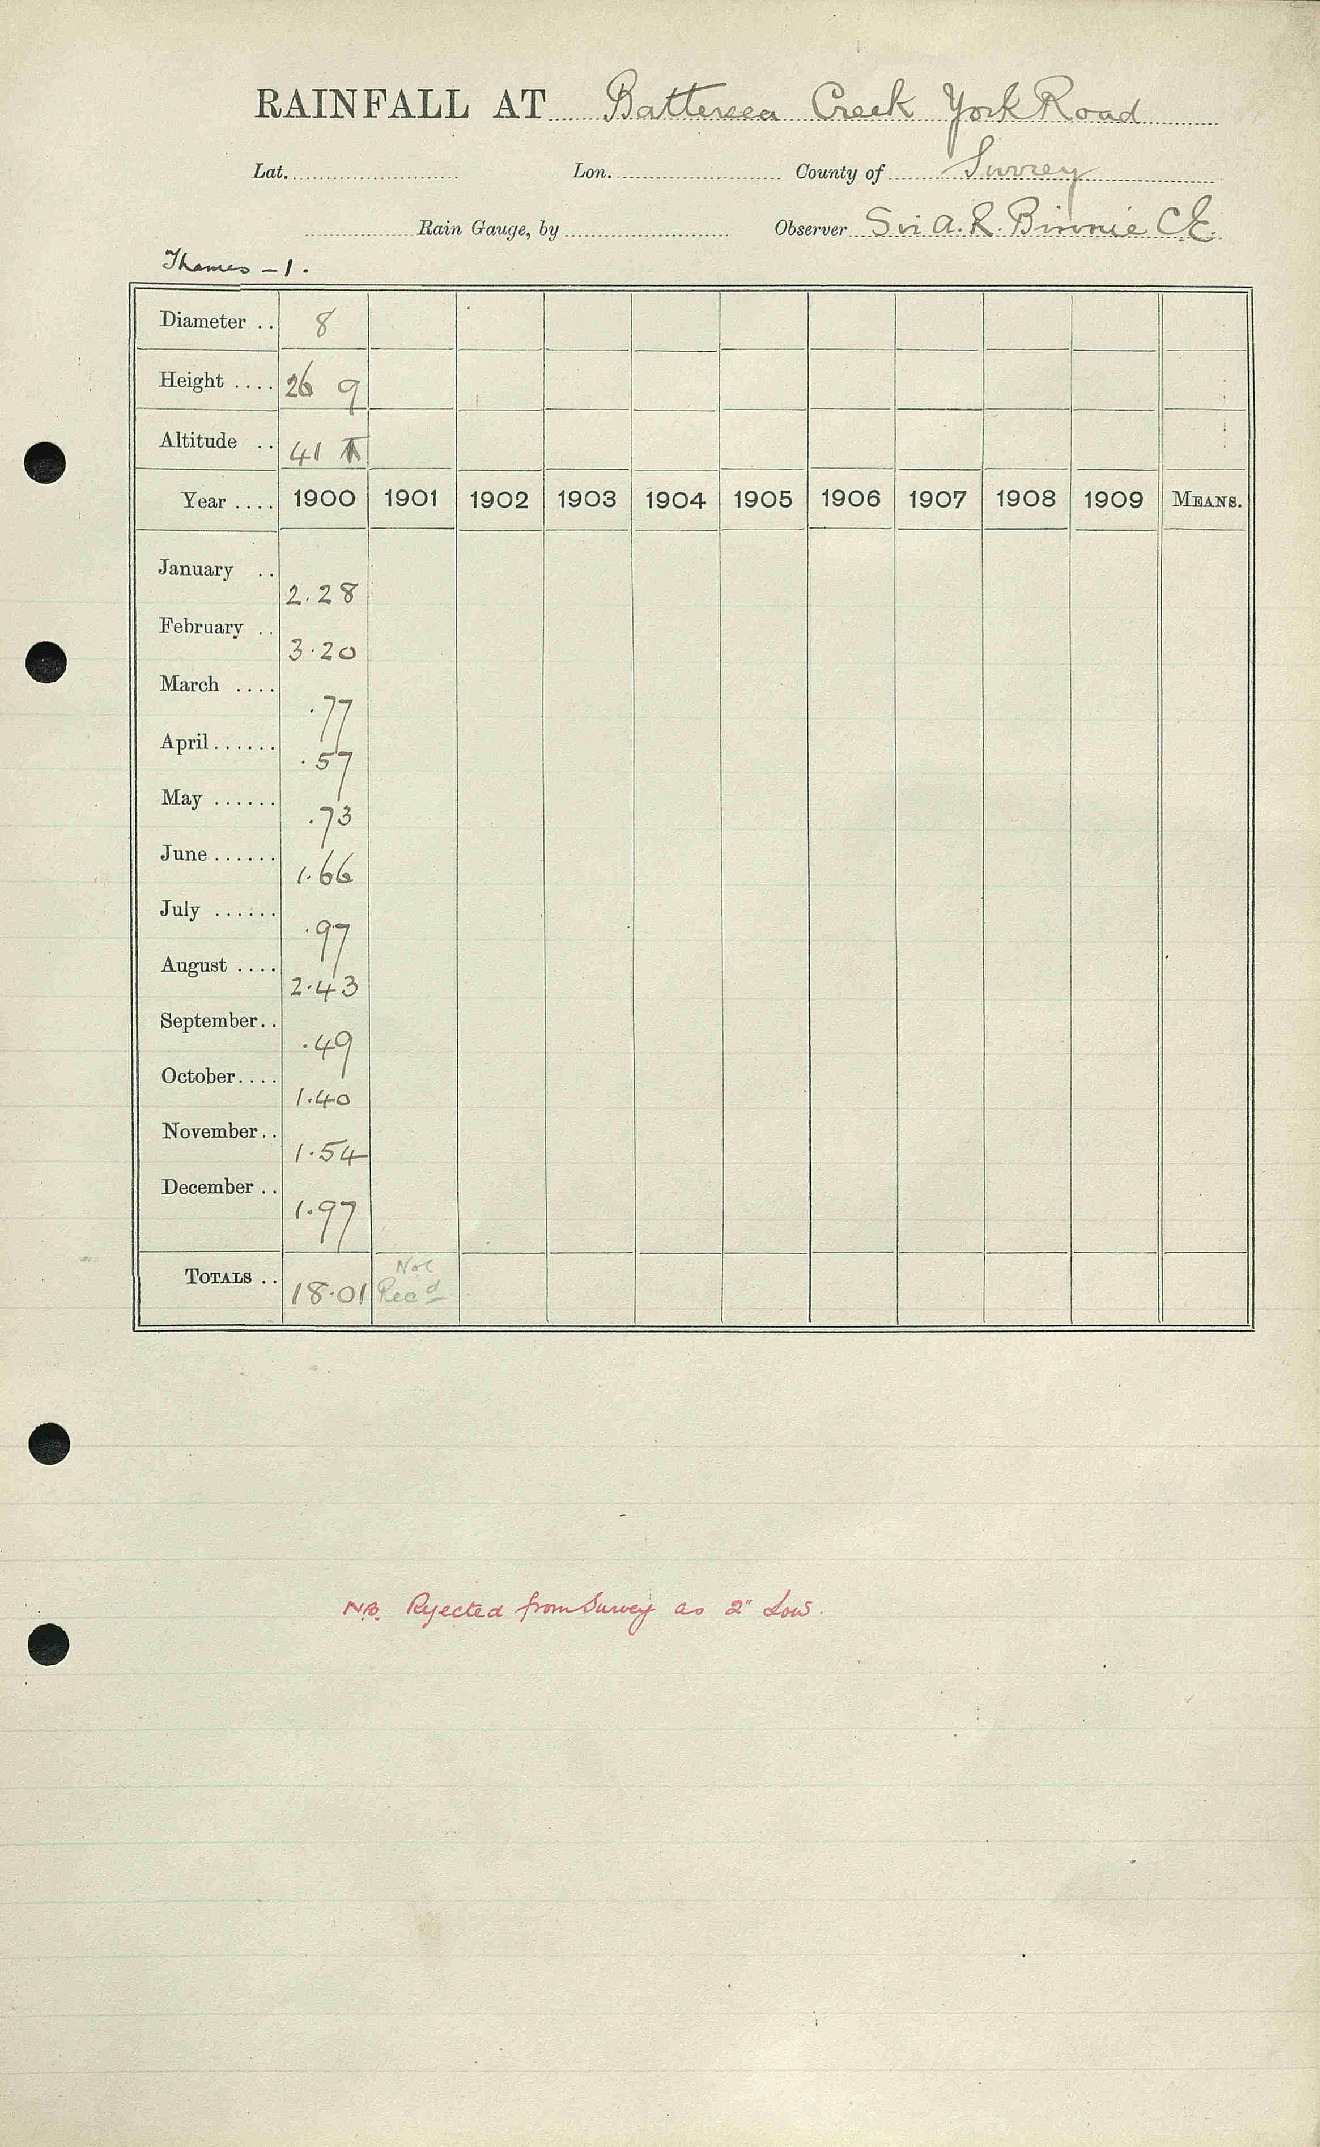 RAINFALL AT Battersea Creek York Road
Lat. Lon. County of Surrey
Rain Gauge, by Observer Sir A. R. Binnie C.E.
Thames - 1.
Diameter .. 8
Height .... 26 9
Altitude .. 41 T
Year .... 1900 1901 1902 1903 1904 1905 1906 1907 1908 1909 MEANS.
January .. 2.28
February .. 3.20
March .... .77
April...... .57
May ...... .73
June...... 1.66
July ...... .97
August .... 2.43
September.. .49
October.... 1.40
November.. 1.54
December .. 1.97
TOTALS .. 18.01 Not Recd
N.B. Rejected from Survey as 2" Low.